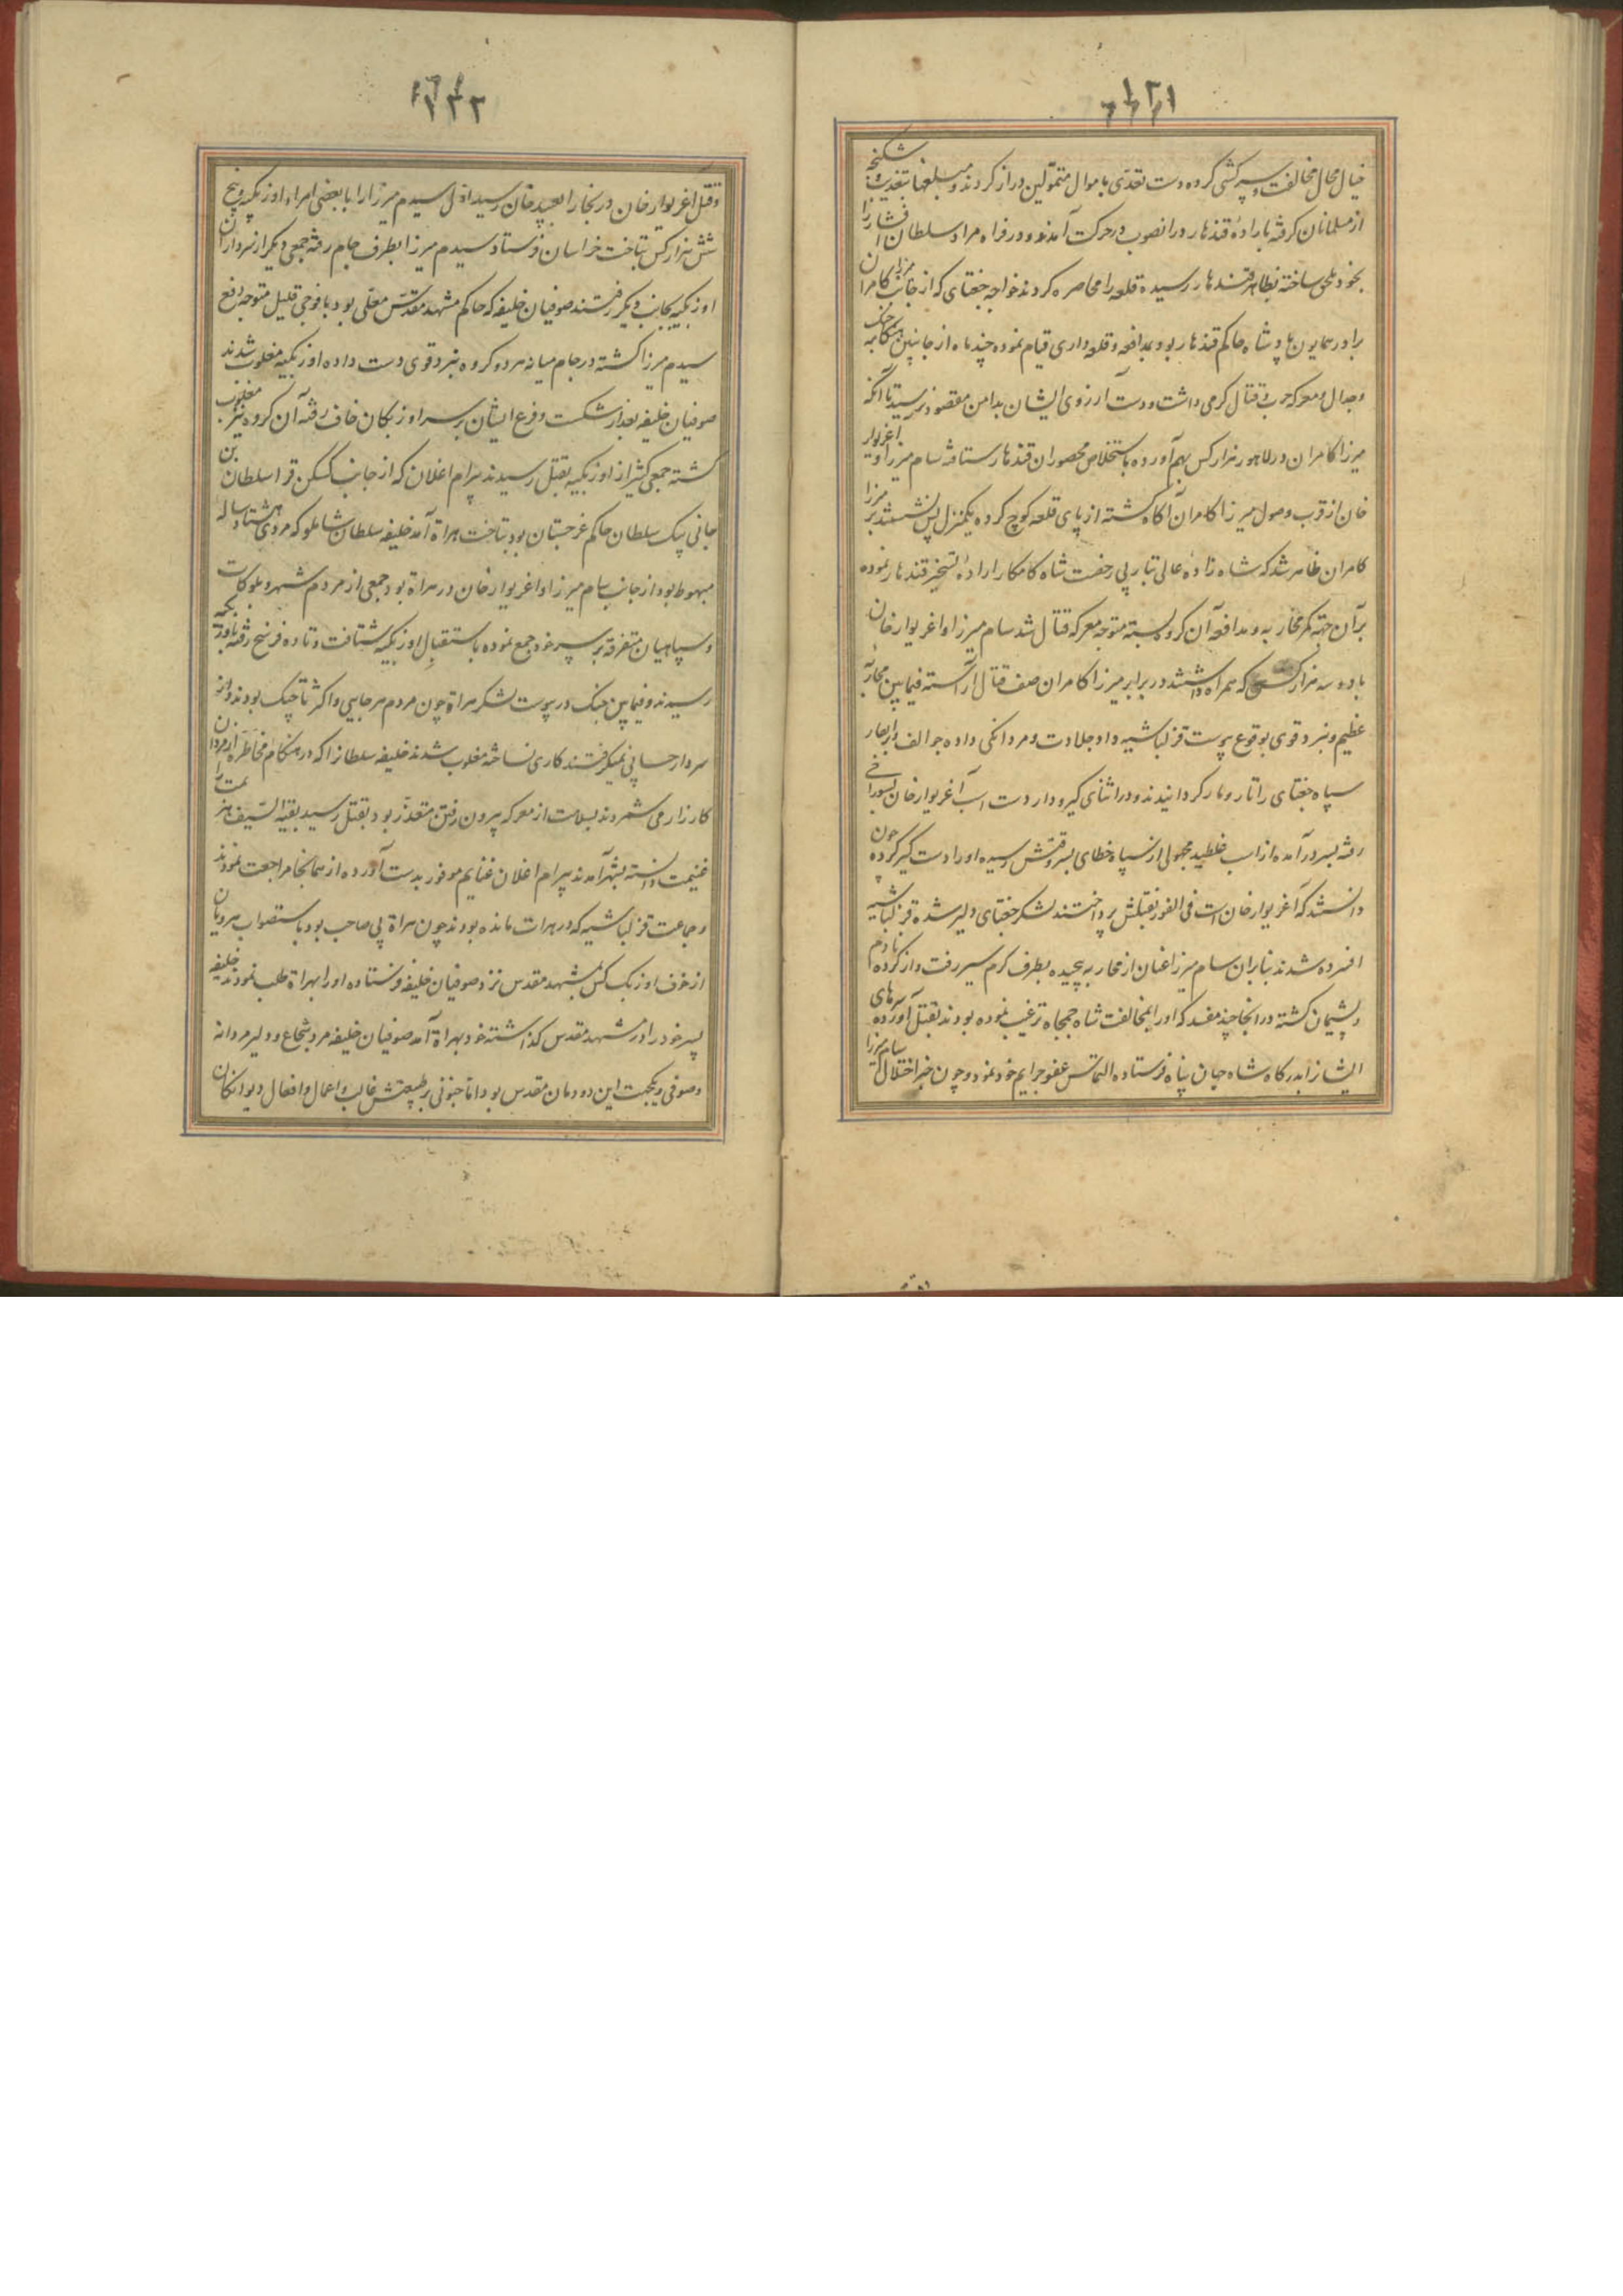 ۱۲۱
خیال محال مخالفت و سرکشی کرده دست تعدی باموال متمولین دراز کردند و مبلغها بتعذیب و شکنجه
از مسلمانان کرفته باراده قندهار در انصوب در حرکت آمدند و در فراه مراد سلطان افشار را
بخود ملحق ساخته بظاهر قندهار رسیده قلعه را محاصره کردند خواجه جغتای که از جانب کامران میرزا
برادر همایون پادشاه حاکم قندهار بود بمدافعه و قلعه داری قیام نموده چند ماه از جانبین هنکامه جنک
و جدال و معرکه حرب و قتال کرمی داشت و دست آرزوی ایشان بدامن مقصود نرسید تا آنکه
میرزا کامران در لاهور هزار کس بهم آورده باستخلاص محصوران قندهار شتافته سام میرزا و اغزیوار
خان از قرب وصول میرزا کامران آکاه کشته از پای قلعه کوچ کرده یکمنزل پس نشستند بر میرزا
کامران ظاهر شد که شاه زاده عالی تبار بی رخصت شاه کامکار اراده تسخیر قندهار نموده
برآن جهة کمر محاربه و مدافعه آن کروه بسته متوجه معرکه قتال شد سام میرزا و اغزیوار خان
با دو سه هزار کسی که همراه داشتند در برابر میرزا کامران صف قتال آراسته فیمابین محاربه
عظیم و نبرد قوی بوقوع پیوست قزلباشیه داد جلادت و مردانکی داده جوانغار و برانغار
سپاه جغتای را تار و مار کردانیدند و در اثنای کیر و دار دست اسب آغزیوار خان بسوراخی
رفته بسر درآمده از اسب غلطید مجهولی از سپاه خطای بسر وقتش رسیده او را دستکیر کرده چون
دانستند که آغزیوار خان است فی الفور بقتلش پرداختند لشکر جغتای دلیر شده قزلباشیه
افسرده شدند بنابران سام میرزا عنان از محاربه پیچیده بطرف کرم سیر رفت و از کرده نادم
و پشیمان کشته در انجا چند مفسد که او را بمخالفت شاه جمجاه ترغیب نموده بودند بقتل آورده سرهای
ایشانرا بدرکاه شاه جهان پناه فرستاده التماس عفو جرایم خود نمود و چون خبر اختلال سام میرزا
۱۲۲
و قتل اغزیوار خان در بخارا بعبید خان رسید اول سیدم میرزا را با بعضی امراء اوزبکیه و پنج
شش هزار کس بتاخت خراسان فرستاد سیدم میرزا بطرف جام رفته جمعی دیکر از سرداران
اوزبکیه بجانب دیکر رفتند صوفیان خلیفه که حاکم مشهد مقدس معلی بود با فوجی قلیل متوجه دفع
سیدم میرزا کشته در جام میانه هر دو کروه نبرد قوی دست داده اوزبکیه مغلوب شدند
صوفیان خلیفه بعد از شکست و فرع ایشان بر سر اوزبکان خاف رفته آن کروه نیز مغلوب
کشته جمعی کثیر از اوزبکیه بقتل رسیدند بیرام اغلان که از جانب کسکن قرا سلطان بن
جانی بیک سلطان حاکم غرجستان بود بتاخت هراة آمد خلیفه سلطان شاملو که مردی هشتاد ساله
مبهوط بود از جانب سام میرزا و اغزیوار خان در هراة بود جمعی از مردم شهر و بلوکات
و سپاهیان متفرقه بر سر خود جمع نموده باستقبال اوزبکیه شتافت و تا ده فرسخ رفته باوزبکیه
رسیدند و فیمابین جنک در پیوست لشکر هراة چون مردم هر جایی و اکثر تاجیک بودند و از
سردار حسابی نمیکرفتند کاری نساخته مغلوب شدند خلیفه سلطانرا که در هنکام مخاطره از مردان
کارزار می شمردند بسلامت از معرکه بیرون رفتن متعذر بود بقتل رسید بقیة السیف هزیمت را
غنیمت دانسته بشهر آمدند بیرام اغلان غنایم موفور بدست آورده از همانجا مراجعت نمودند
و جماعت قزلباشیه که در هرات مانده بودند چون هراة بی صاحب بود باستصواب هرویان
از خوف اوزبک کس بمشهد مقدس نزد صوفیان خلیفه فرستاده او را بهراة طلب نمودند خلیفه
پسر خود را در مشهد مقدس کذاشته خود بهراة آمد صوفیان خلیفه مرد شجاع و دلیر مردانه
و صوفی و یکجهت این دودمان مقدس بود اما جنونی بر طبیعتش غالب و اعمال و افعال دیوانکان